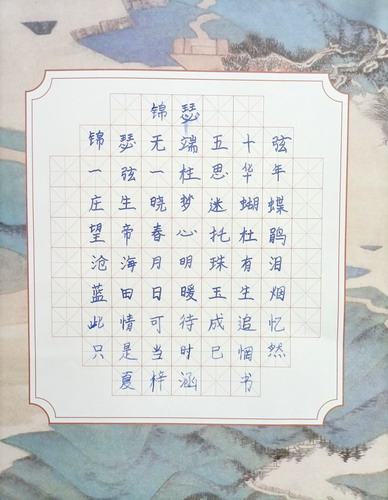 锦瑟
锦瑟无端五十弦
一弦一柱思华年
庄生晓梦迷蝴蝶
望帝春心托杜鹃
沧海月明珠有泪
蓝田日暖玉生烟
此情可待成追忆
只是当时已惘然
夏梓涵 书